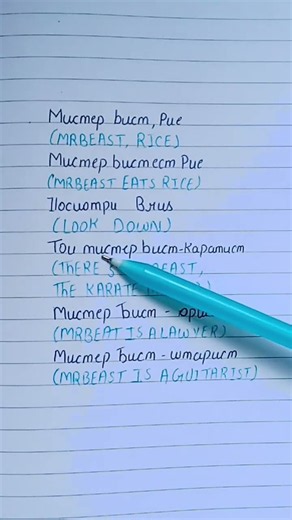 Мистер бист, Рие
(MRBEAST, RICE)
Мистер бистест Рие
(MRBEAST EATS RICE)
Посмотри Вниз
(LOOK DOWN)
Тои мистер бист-Каратист
(THERE
THE KARATE
Мистер Бист -
(MRBEAT IS A LAWYER)
Мистер Бист - штарист
(MRBEAST IS A GUITARIST)